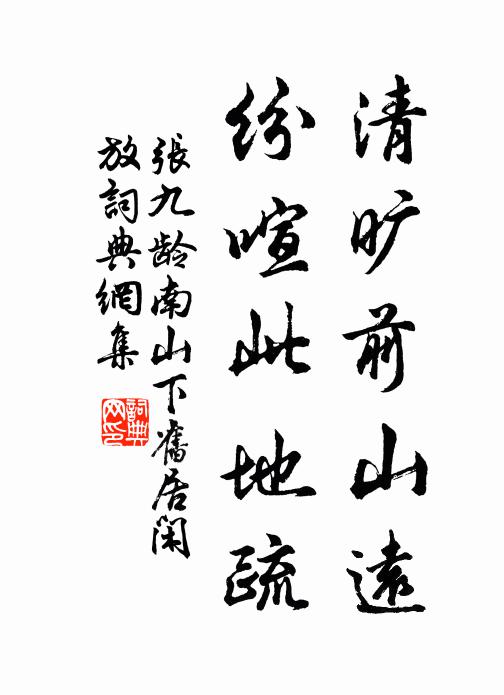 清旷前山遠
紛喧此地疏
張九龄南山下舊居閑
放詞典網集
詞典
网印